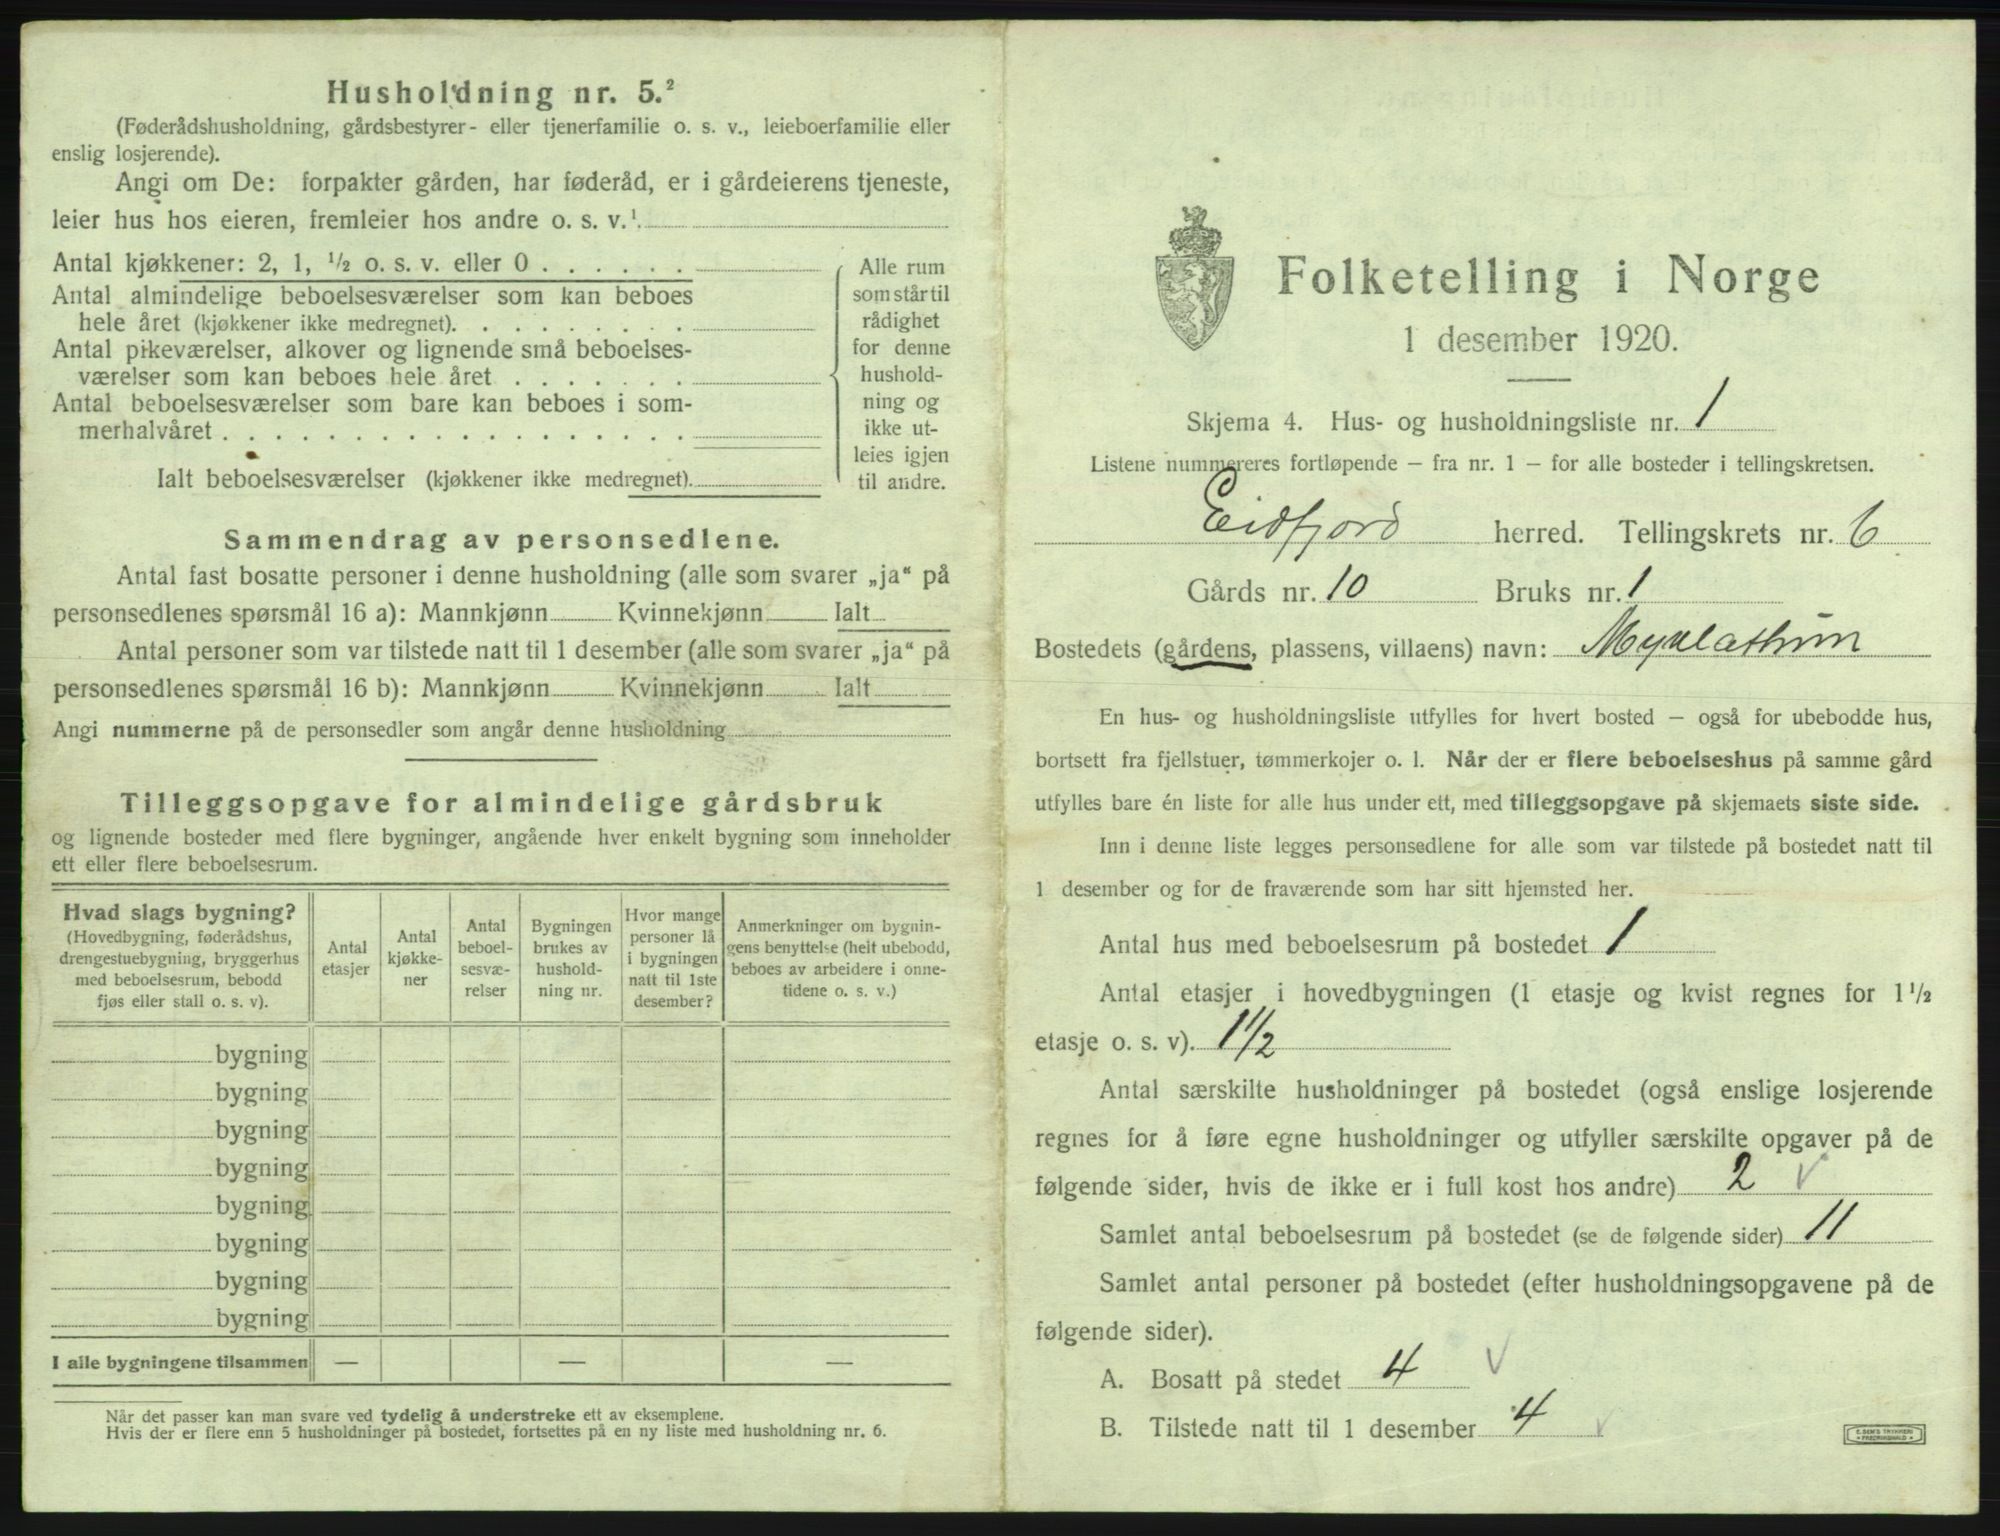 Husholdning nr. 5.²
(Føderådshusholdning, gårdsbestyrer- eller tjenerfamilie o. s. v., leieboerfamilie eller
enslig losjerende).
Angi om De: forpakter gården, har føderåd, er i gårdeierens tjeneste,
leier hus hos eieren, fremleier hos andre o. s. v.¹
Antal kjøkkener: 2, 1, ½ o. s. v. eller 0
Antal almindelige beboelsesværelser som kan beboes
hele året (kjøkkener ikke medregnet).
Antal pikeværelser, alkover og lignende små beboelses-
værelser som kan beboes hele året
Antal beboelsesværelser som bare kan beboes i som-
merhalvåret
Alle rum
som står til
rådighet
for denne
hushold-
ning og
ikke ut-
leies igjen
til andre.
Ialt beboelsesværelser (kjøkkener ikke medregnet).
Sammendrag av personsedlene.
Antal fast bosatte personer i denne husholdning (alle som svarer „ja“ på
personsedlenes spørsmål 16 a): Mannkjønn Kvinnekjønn Ialt
Antal personer som var tilstede natt til 1 desember (alle som svarer „ja“ på
personsedlenes spørsmål 16 b): Mannkjønn Kvinnekjønn Ialt
Angi nummerne på de personsedler som angår denne husholdning
Tilleggsopgave for almindelige gårdsbruk
og lignende bosteder med flere bygninger, angående hver enkelt bygning som inneholder
ett eller flere beboelsesrum.
Hvad slags bygning?
(Hovedbygning, føderådshus,
drengestuebygning, bryggerhus
med beboelsesrum, bebodd
fjøs eller stall o. s. v).
Antal
etasjer
Antal
kjøkke-
ner
Antal
beboel-
sesvæ-
relser
Bygningen
brukes av
hushold-
ning nr.
Hvor mange
personer lå
i bygningen
natt til 1ste
desember?
Anmerkninger om bygnin-
gens benyttelse (helt ubebodd,
beboes av arbeidere i onne-
tidene o. s. v.)
bygning
bygning
bygning
bygning
bygning
bygning
bygning
bygning
I alle bygningene tilsammen — — —
Når det passer kan man svare ved tydelig å understreke ett av eksemplene.
Hvis der er flere enn 5 husholdninger på bostedet, fortsettes på en ny liste med husholdning nr. 6.
Folketelling i Norge
1 desember 1920.
Skjema 4. Hus- og husholdningsliste nr. 1
Listene nummereres fortløpende – fra nr. 1 – for alle bosteder i tellingskretsen.
Eidfjord herred. Tellingskrets nr. 6
Gårds nr. 10 Bruks nr. 1
Bostedets (gårdens, plassens, villaens) navn:
En hus- og husholdningsliste utfylles for hvert bosted – også for ubebodde hus,
bortsett fra fjellstuer, tømmerkojer o. l. Når der er flere beboelseshus på samme gård
utfylles bare én liste for alle hus under ett, med tilleggsopgave på skjemaets siste side.
Inn i denne liste legges personsedlene for alle som var tilstede på bostedet natt til
1 desember og for de fraværende som har sitt hjemsted her.
Antal hus med beboelsesrum på bostedet 1
Antal etasjer i hovedbygningen (1 etasje og kvist regnes for 1½
etasje o. s. v). 1½
Antal særskilte husholdninger på bostedet (også enslige losjerende
regnes for å føre egne husholdninger og utfyller særskilte opgaver på de
følgende sider, hvis de ikke er i full kost hos andre) 2 ✓
Samlet antal beboelsesrum på bostedet (se de følgende sider) 11
Samlet antal personer på bostedet (efter husholdningsopgavene på de
følgende sider).
A. Bosatt på stedet 4 ✓
B. Tilstede natt til 1 desember 4 ✓
E. SEM'S TRYKKERI
FREDRIKSHALD